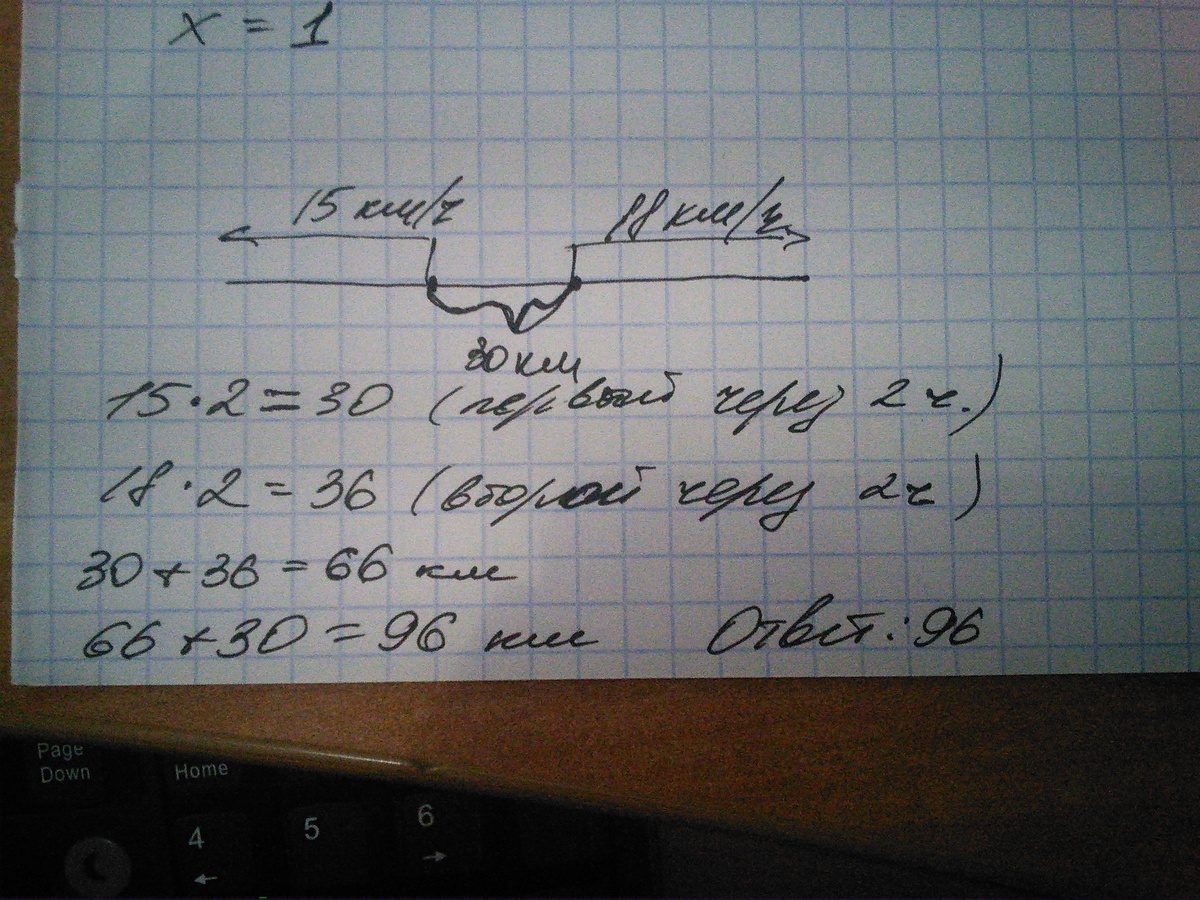 x = 1
15 км/ч
18 км/ч
30 км
15·2=30 (первый через 2 ч.)
18·2=36 (второй через 2ч)
30+36=66 км
66+30=96 км Ответ: 96
Page Down
Home
4
5
6